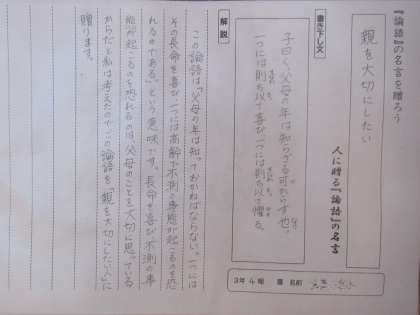 『論語』の名言を贈ろう
親を大切にしたい
人に贈る『論語』の名言
書き下し文
子曰く、父母の年は知らざる可からず也。
一つには則ち以て喜び、一つには則ち以て懼る。
解説
この論語は「父母の年は知っておかねばならない。一つには
その長命を喜び、一つには高齢で不測の事態が起こるのを恐
れるのである。」という意味です。長命を喜び不測の事
態が起こるのを恐れるのは父母のことを大切に思っている
からだと私は考えたのでこの論語を「親を大切にしたい人」に
贈ります。
3年4組 番 名前